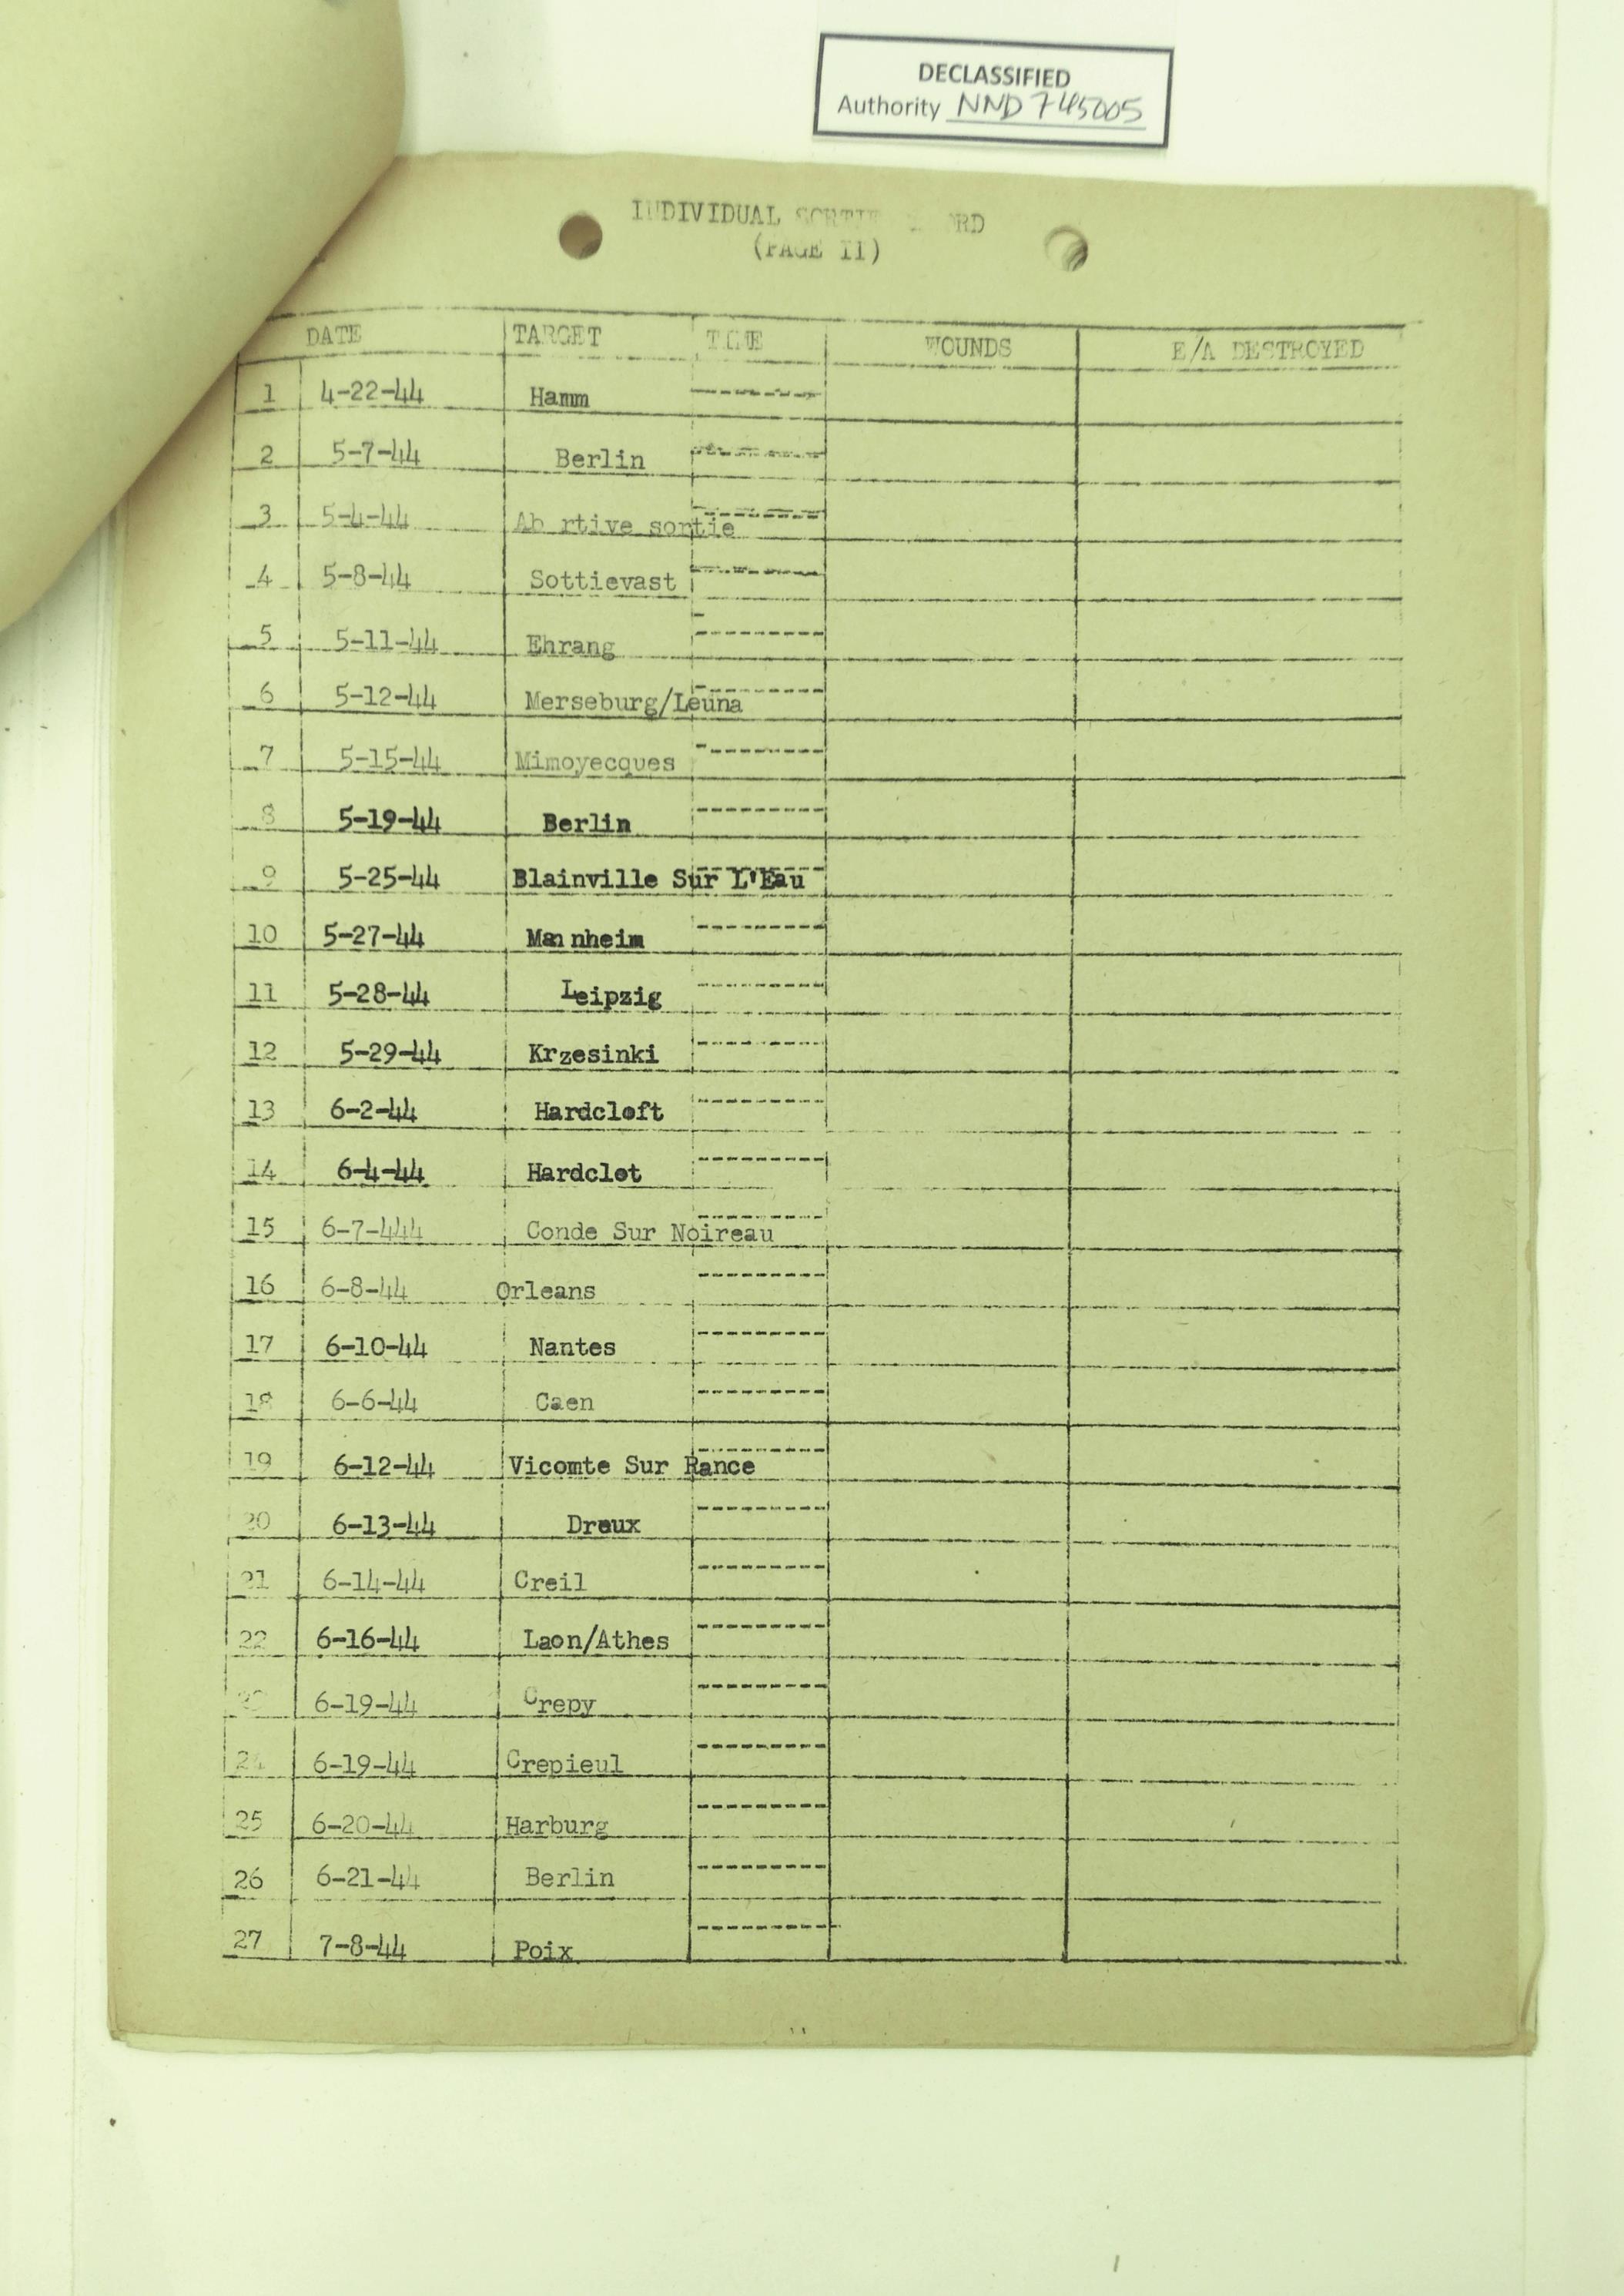 DECLASSIFIED
Authority NND 745005
INDIVIDUAL SORTIE RD
(PAGE II)
DATE TARGET TIME WOUNDS E/A DESTROYED
1 4-22-44 Hamm ---------
2 5-7-44 Berlin ---------
3 5-4-44 Ab rtive sortie ---------
4 5-8-44 Sottievast ---------
5 5-11-44 Ehrang ---------
6 5-12-44 Merseburg/Leuna ---------
7 5-15-44 Mimoyecques ---------
8 5-19-44 Berlin ---------
9 5-25-44 Blainville Sur L'Eau ---------
10 5-27-44 Mannheim ---------
11 5-28-44 Leipzig ---------
12 5-29-44 Krzesinki ---------
13 6-2-44 Hardcloft ---------
14 6-4-44 Hardclot ---------
15 6-7-444 Conde Sur Noireau ---------
16 6-8-44 Orleans ---------
17 6-10-44 Nantes ---------
18 6-6-44 Caen ---------
19 6-12-44 Vicomte Sur Rance ---------
20 6-13-44 Dreux ---------
21 6-14-44 Creil ---------
22 6-16-44 Laon/Athes ---------
6-19-44 Crepy ---------
24 6-19-44 Crepieul ---------
25 6-20-44 Harburg ---------
26 6-21-44 Berlin ---------
27 7-8-44 Poix ---------